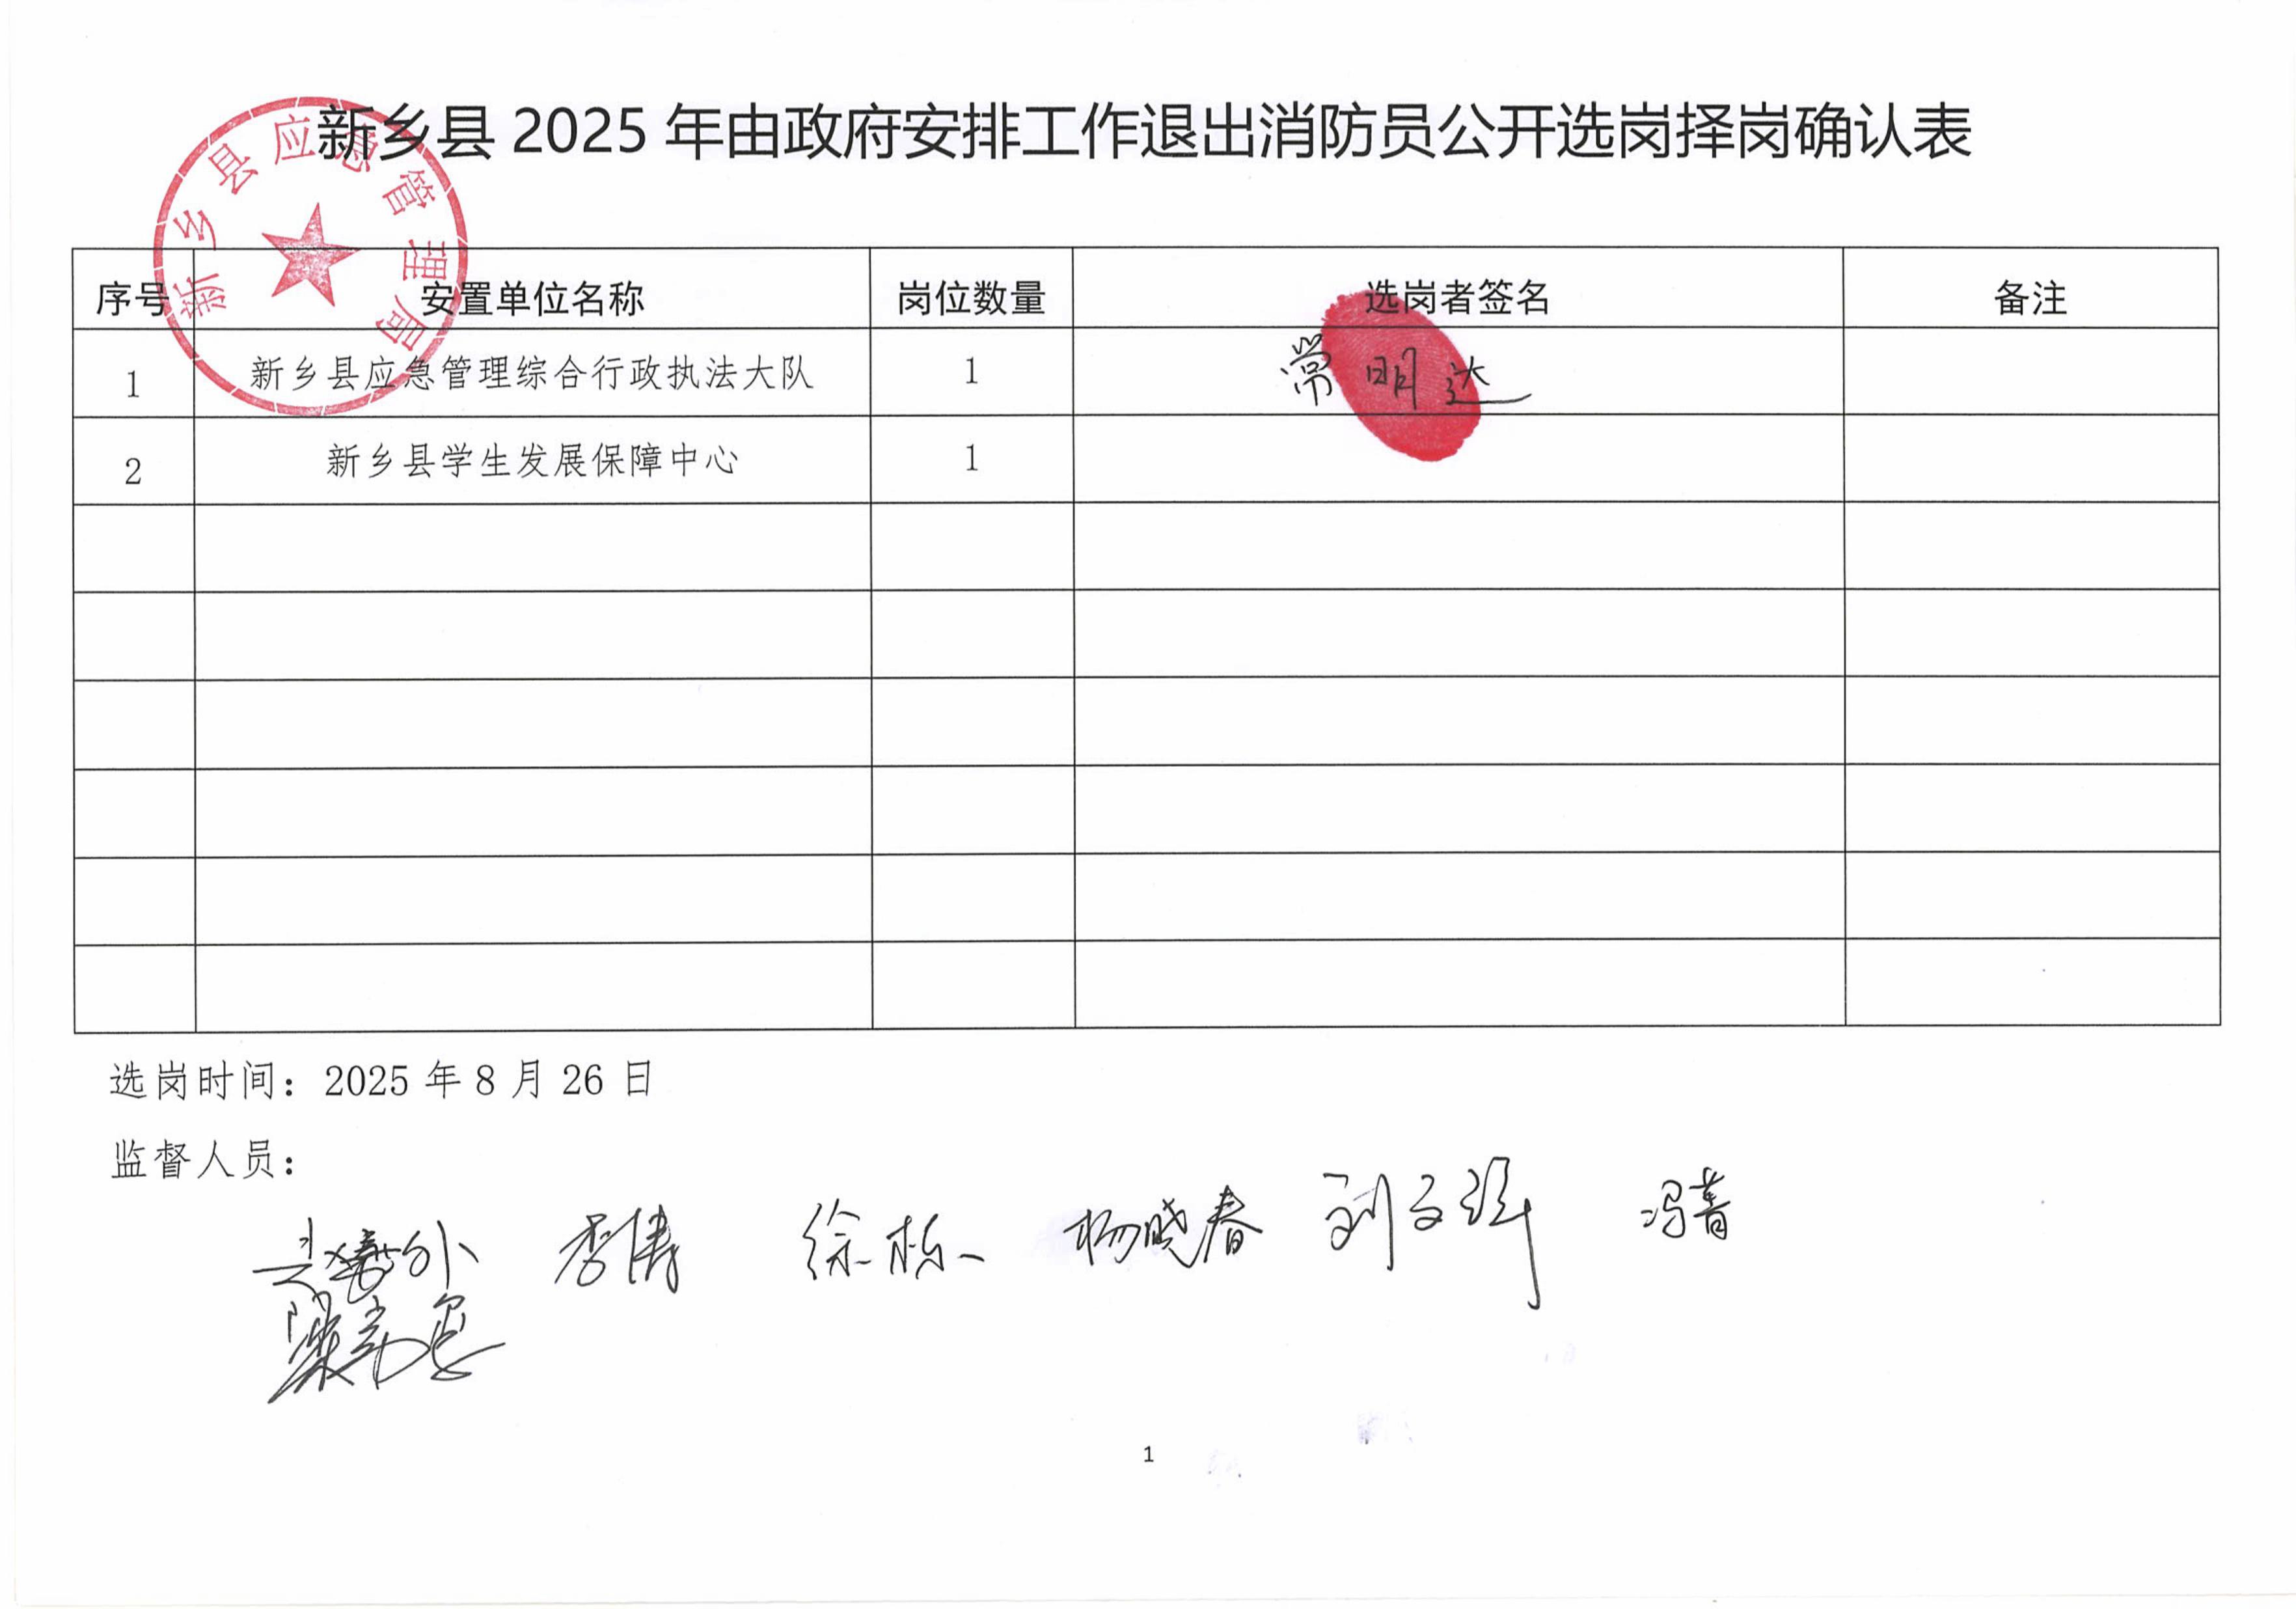 新乡县 2025 年由政府安排工作退出消防员公开选岗择岗确认表
新乡县应急管理局
序号 安置单位名称 岗位数量 选岗者签名 备注
1 新乡县应急管理综合行政执法大队 1 常明达
2 新乡县学生发展保障中心 1
选岗时间：2025 年 8 月 26 日
监督人员：
李涛 徐栋 杨晓春 刘文强 冯菁
1